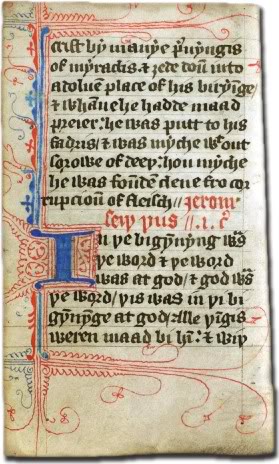 crist by manye p'uyngis
of myraclis & zede doun into
a doluen place of his biryinge
& whanne he hadde maad
preier: he was putt to his
fadris/ & was myche wtout
sorowe of deeþ: hou myche
he was founden clene fro cor
rupcioun of fleisch// Jerom
seiþ þus // .i. cº
In þe bigynnyng was
þe word & þe word
was at god/ & god was
þe word/ þis was in þe bi
gynnynge at god/ alle þingis
weren maad bi hī: & wiþ